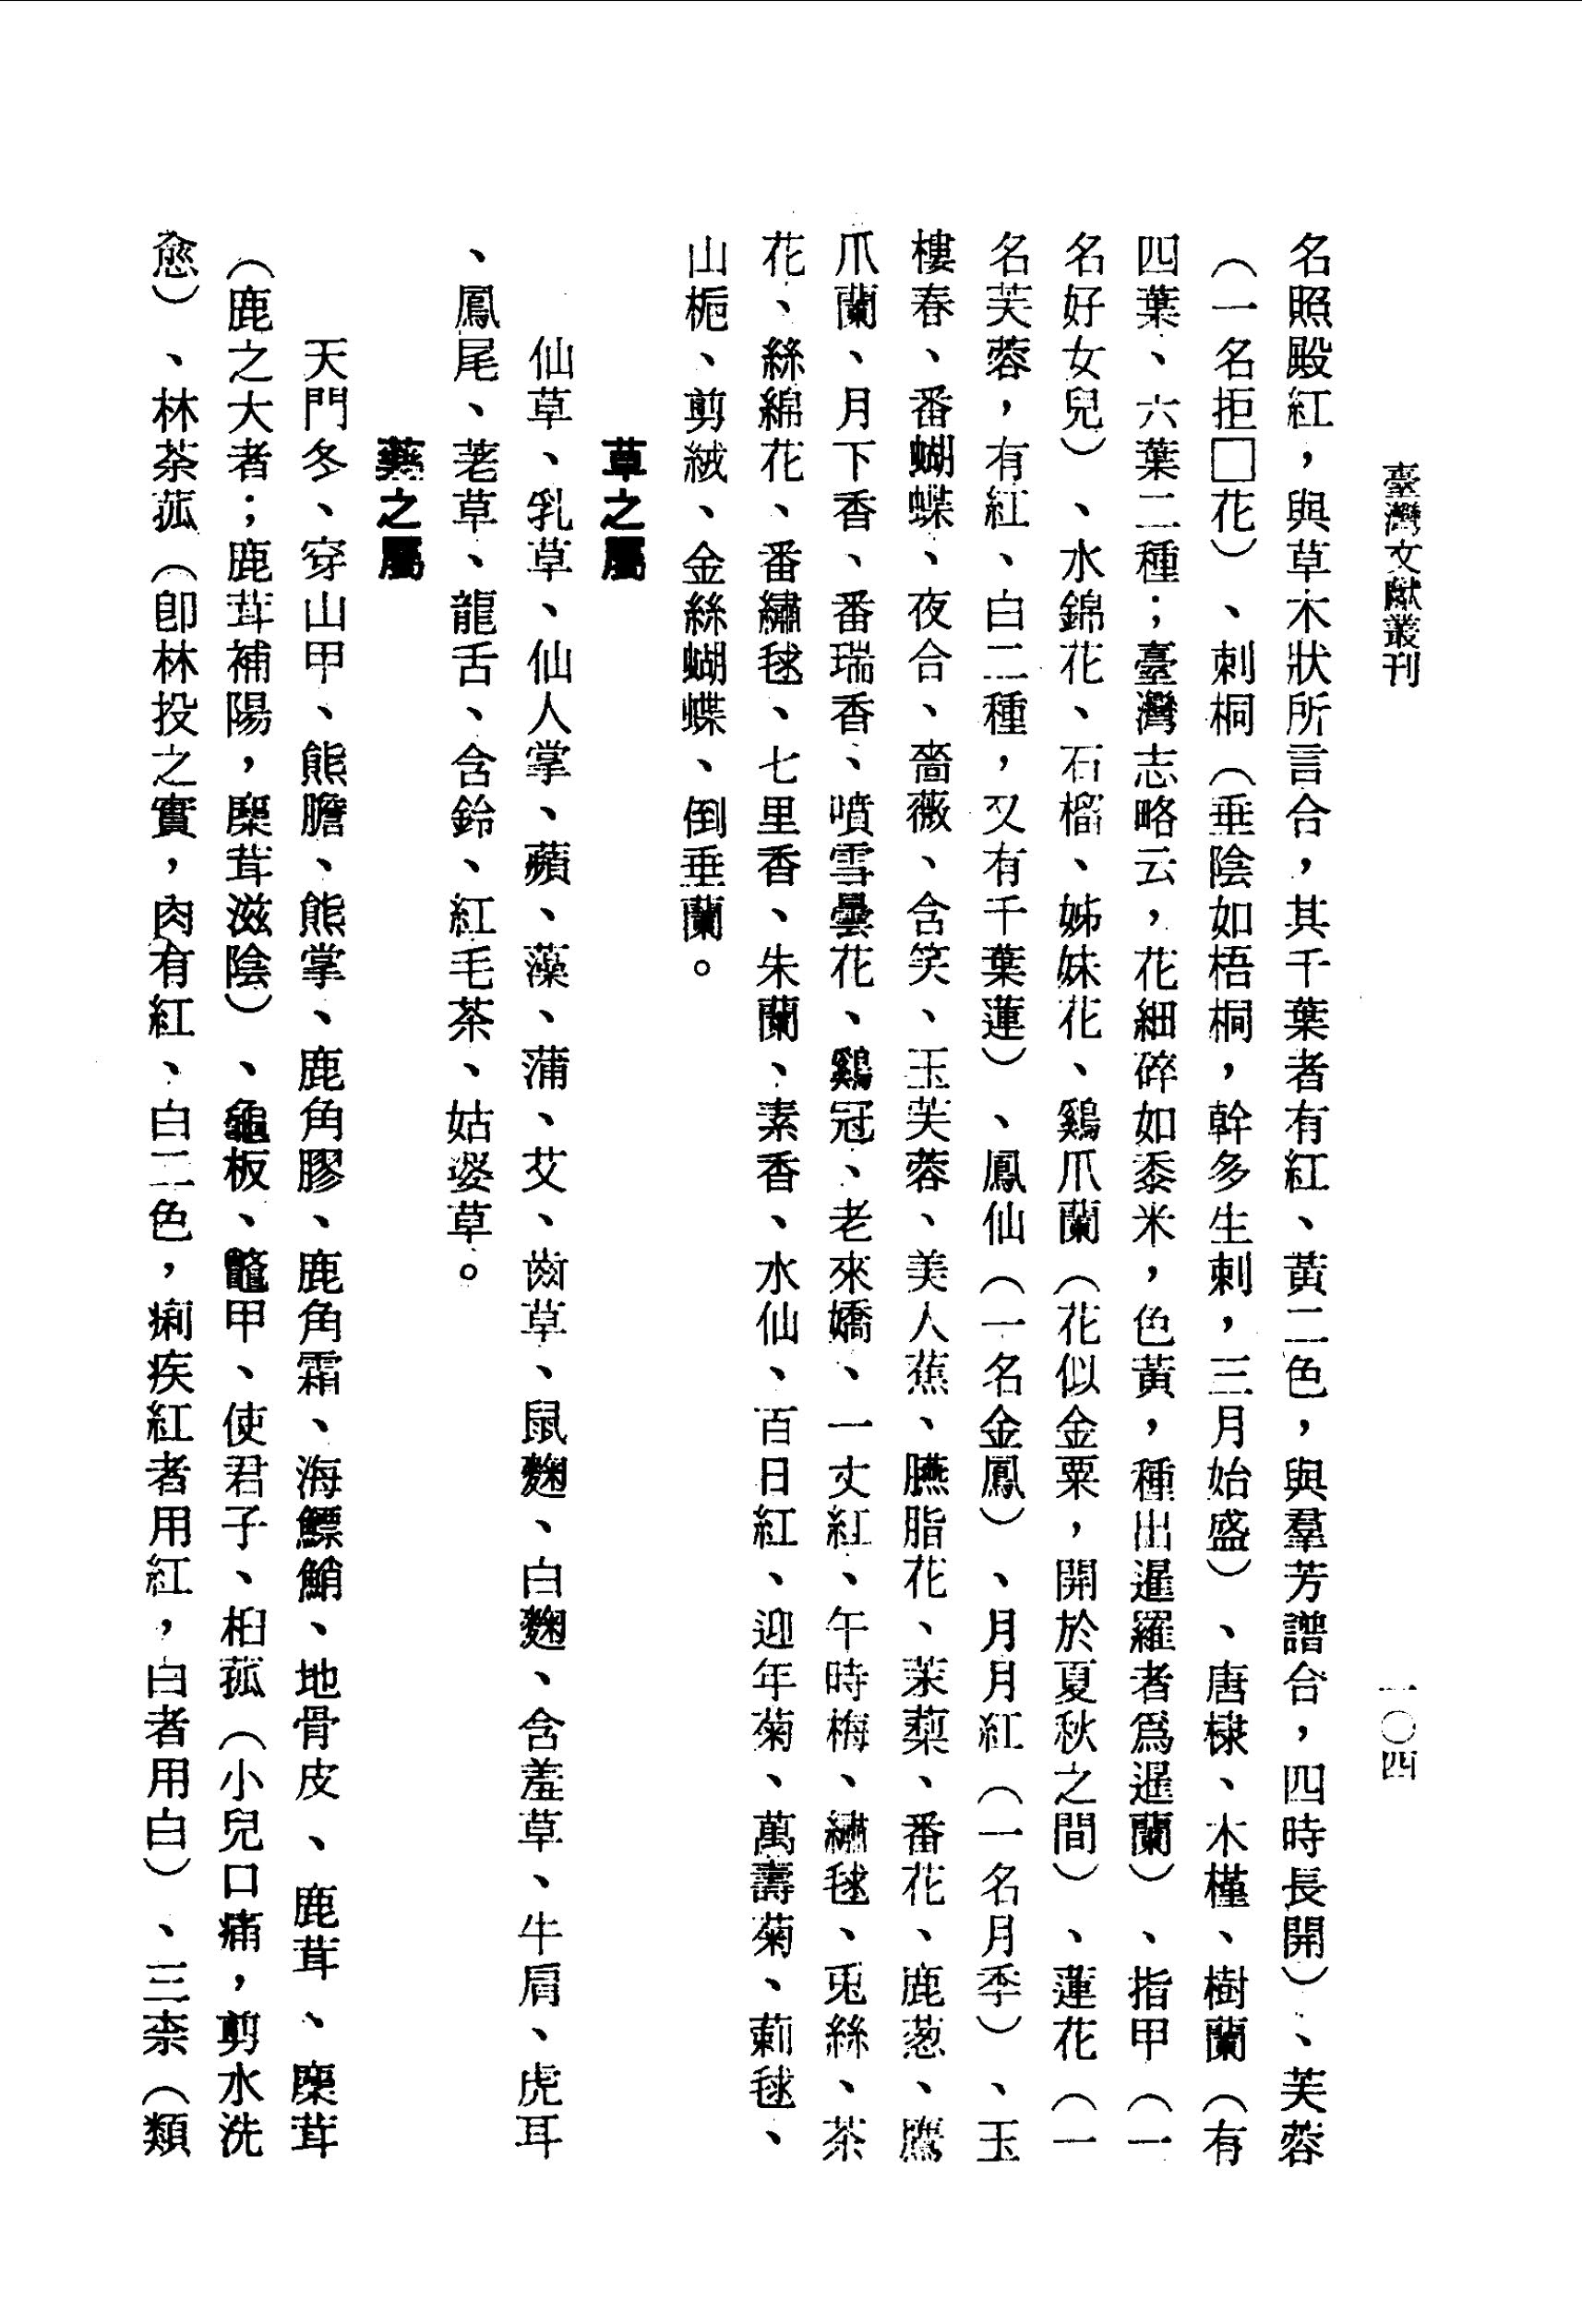 臺灣文獻叢刊
一〇四
名照殿紅，與草木狀所言合，其千葉者有紅、黃二色，與羣芳譜合，四時長開）、芙蓉
（一名拒□花）、刺桐（垂陰如梧桐，幹多生刺，三月始盛）、唐棣、木槿、樹蘭（有
四葉、六葉二種；臺灣志略云，花細碎如黍米，色黃，種出暹羅者爲暹蘭）、指甲（一
名好女兒）、水錦花、石榴、姊妹花、鷄爪蘭（花似金粟，開於夏秋之間）、蓮花（一
名芙蓉，有紅、白二種，又有千葉蓮）、鳳仙（一名金鳳）、月月紅（一名月季）、玉
樓春、番蝴蝶、夜合、薔薇、含笑、玉芙蓉、美人蕉、臙脂花、茉藜、番花、鹿葱、鷹
爪蘭、月下香、番瑞香、噴雪曇花、鷄冠、老來嬌、一丈紅、午時梅、繡毬、兎絲、茶
花、絲綿花、番繡毬、七里香、朱蘭、素香、水仙、百日紅、迎年菊、萬壽菊、莿毬、
山梔、剪絨、金絲蝴蝶、倒垂蘭。
草之屬
仙草、乳草、仙人掌、蘋、藻、蒲、艾、齒草、鼠麴、白麴、含羞草、牛肩、虎耳
、鳳尾、荖草、龍舌、含鈴、紅毛茶、姑婆草。
藥之屬
天門冬、穿山甲、熊膽、熊掌、鹿角膠、鹿角霜、海鰾鮹、地骨皮、鹿茸、麋茸
（鹿之大者；鹿茸補陽，麋茸滋陰）、龜板、鼈甲、使君子、桕菰（小兒口痛，剪水洗
愈）、林荼菰（卽林投之實，肉有紅、白二色，痢疾紅者用紅，白者用白）、三柰（類